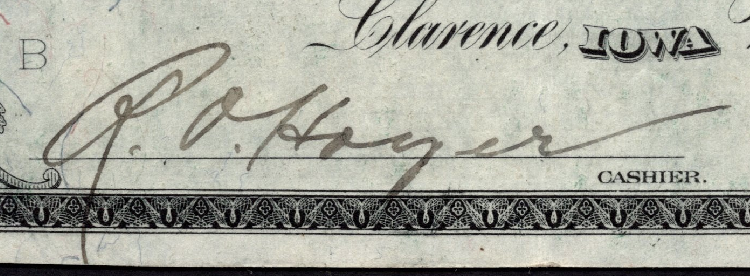 Clarence, IOWA
B
R. O. Hoyer
CASHIER.